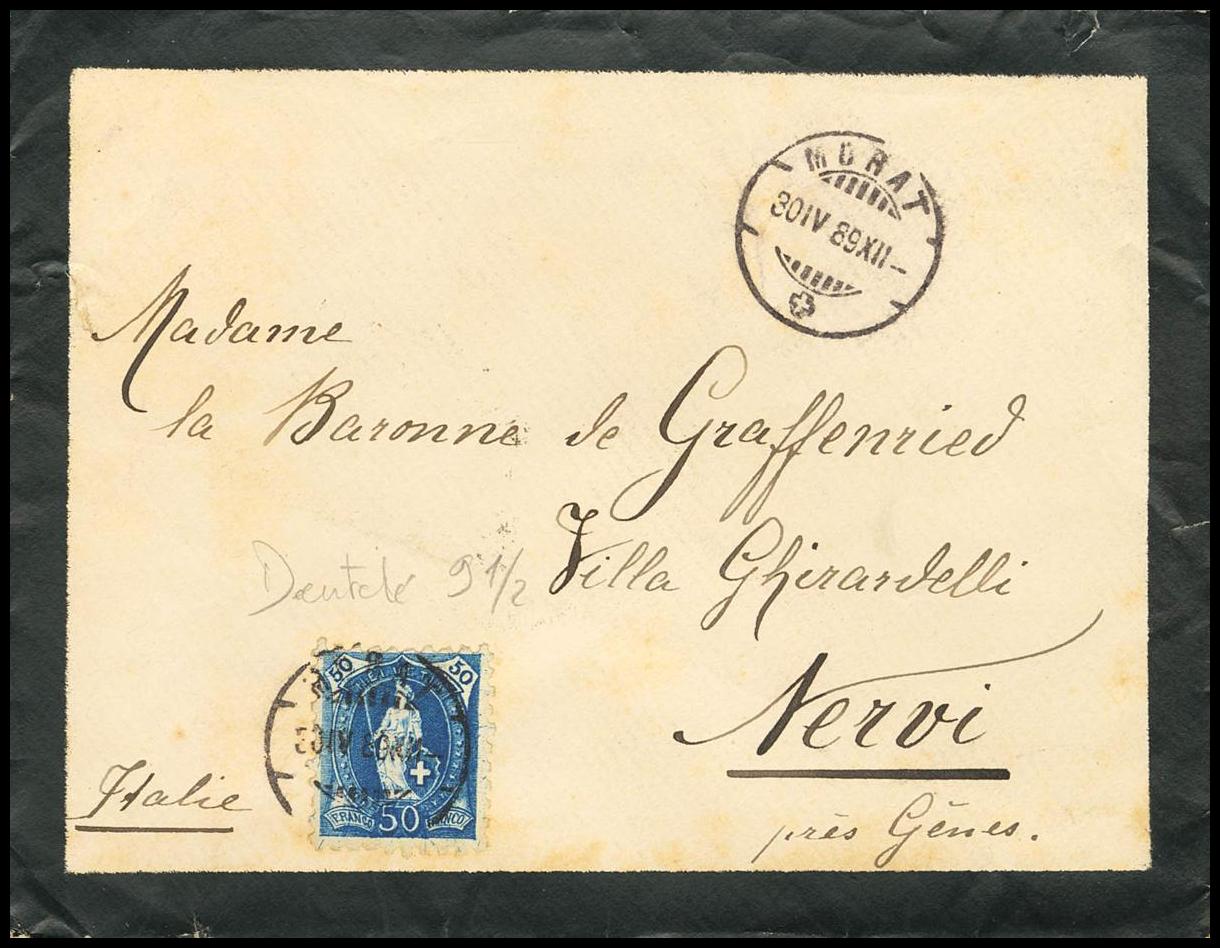 MORAT
30 IV 89 XII –
Madame
la Baronne de Graffenried
Villa Ghirardelli
Dentelé 9 1/2
Nervi
près Gênes.
Italie
50 50
30 IV 89 XII –
FRANCO 50 FRANCO